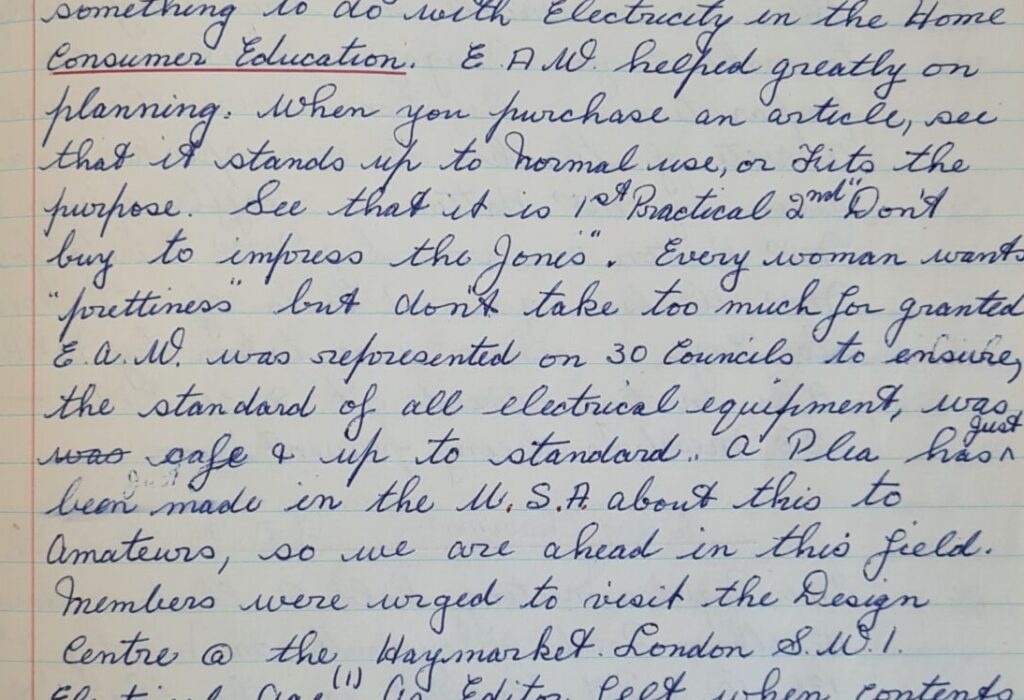 something to do with Electricity in the Home
Consumer Education. E.A.W. helped greatly on
planning. When you purchase an article, see
that it stands up to normal use, or fits the
purpose. See that it is 1st Practical 2nd "Don't
buy to impress the Jones". Every woman wants
"prettiness" but don't take too much for granted
E.A.W. was represented on 30 Councils to ensure,
the standard of all electrical equipment, was,
was safe & up to standard. A Plea has ^ just
been made in the U.S.A. about this to
Amateurs, so we are ahead in this field.
Members were urged to visit the Design
Centre @ the Haymarket. London S.W.1.
Electrical Age (1) As Editor felt when contents